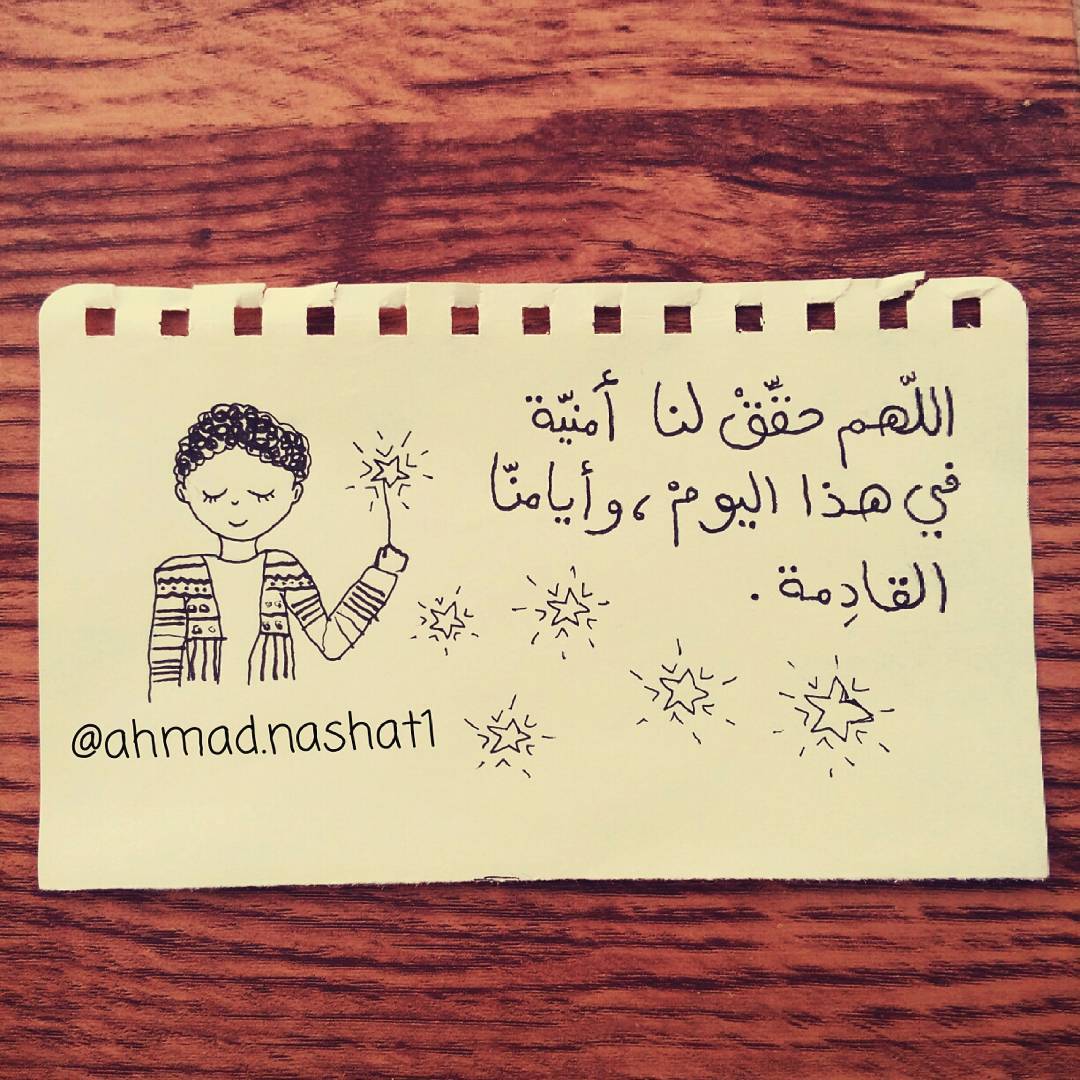 اللّهم حقِّقْ لنا أمنيّة
في هذا اليومْ، وأيامنّا
القادِمة.
@ahmad.nashat1